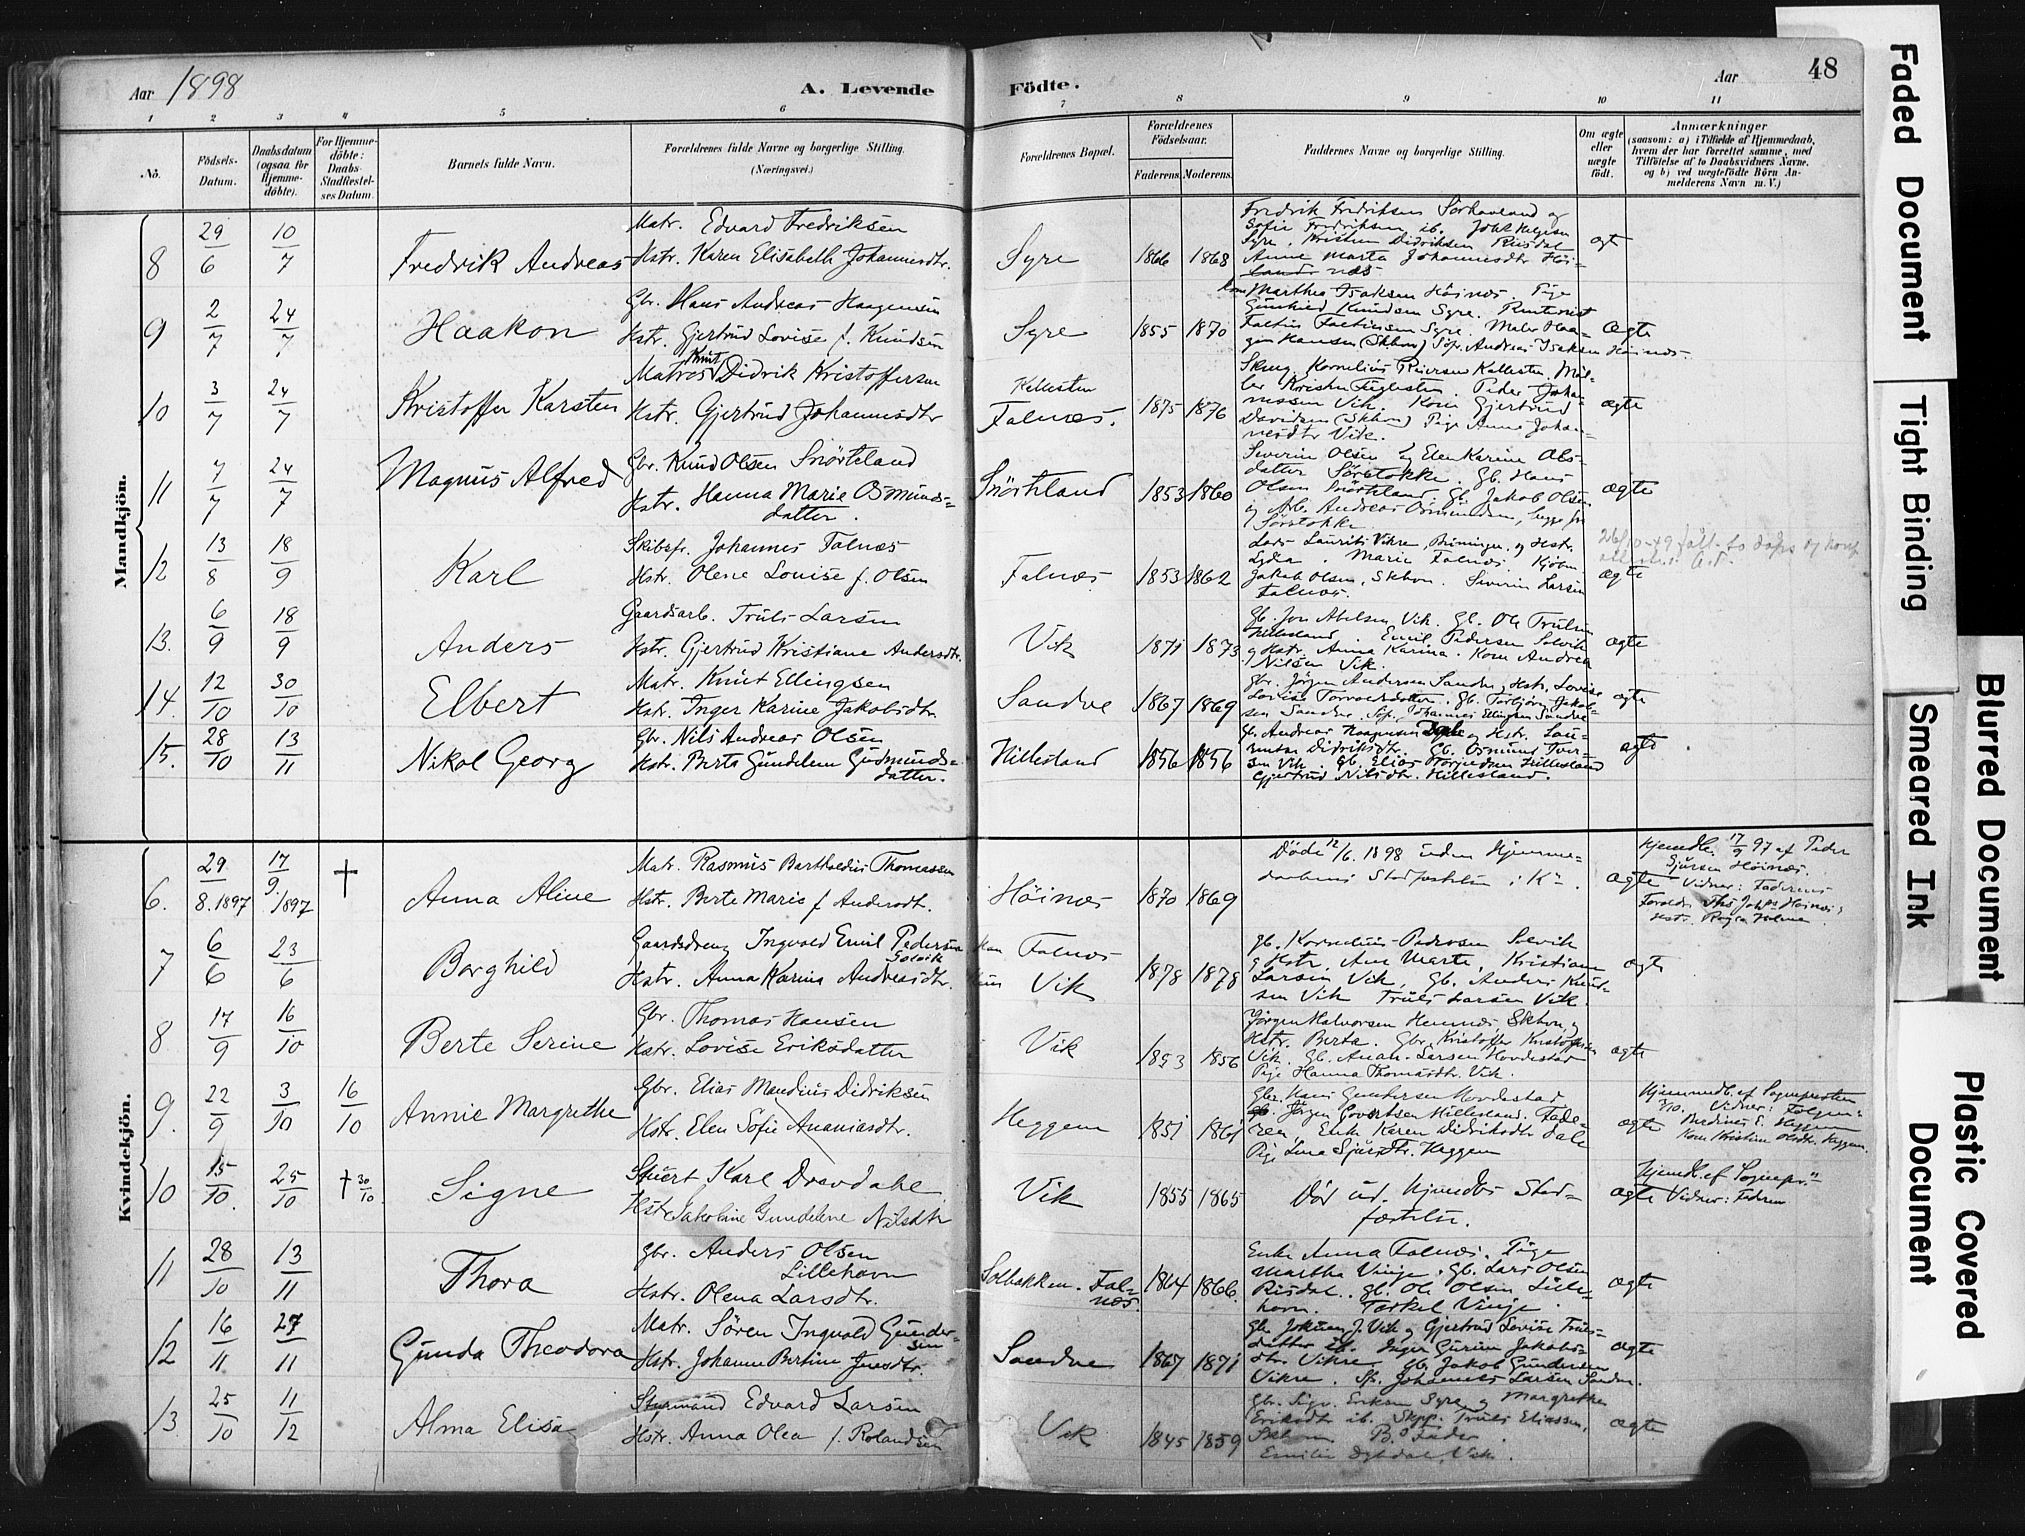 Aar 1898
A. Levende
Födte.
Aar
48
1 2 3 4 5 6 7 8 9 10 11
No.
Födsels-Datum.
Daabsdatum (ogsaa for Hjemme-döbte).
For Hjemme-döbte: Daabs-Stadfæstel-ses Datum.
Barnets fulde Navn.
Forældrenes fulde Navne og borgerlige Stilling.
(Næringsvei.)
Forældrenes Bopæl.
Forældrenes Födselsaar.
Faderens. Moderens.
Faddernes Navne og borgerlige Stilling.
Om ægte eller uægte födt.
Anmærkninger
(saasom: a) i Tilfælde af Hjemmedaab,
hvem der har forrettet samme, med
Tilföielse af to Daabsvidners Navne,
og b) ved uægtefödte Börn An-
melderens Navn m. V.)
Mandkjön.
8 29/6 10/7 Fredrik Andreas
Matr. Edvard Fredriksen
Hstr. Karen Elisabeth Johannesdtr.
Syre 1866 1868
Fredrik Fredriksen Sörhaaland og
Sofie Fredriksen ib.
Syre. Kristian Didriksen Risdal
Anne Marta Johannesdtr Höi-
næs
ægt
9 2/7 24/7 Haakon
Gbr. Hans Andreas Haagensen
Hstr. Gjertrud Lovise f. Knudsen
Syre 1855 1870
Kone Martha Isaksen Höinæs. Pige
Gunhild Knudsen Syre.
Syre. Maler Haa-
gen Hansen (Skhvn) Söfr. Andreas Isaksen Höinæs.
ægte
10 3/7 24/7 Kristoffer Karsten
Matros Knut Didrik Kristoffersen
Hstr. Gjertrud Johannesdtr
Kallesten
Falnæs. 1875 1876
Kornelius Reiersen Kallesten. Mat-
Peder Johan-
nessen Vik. Kone Gjertrud
Davidsen (Skhvn) Pige Anna Johan-
nesdtr Vik.
ægte
11 7/7 24/7 Magnus Alfred
Gbr. Knud Olsen Snörteland
Hstr. Hanna Marie Osmunds-
datter.
Snörteland 1853 1860
Severin Olsen og Elen Karine Ols-
datter Sörstokke. Gb. Hans
Olsen Snörteland. Gb. Jakob Olsen
og Arb. Andreas Osmundsen, begge fra
Sörstokke
ægte
12 13/8 18/9 Karl
Skibsf. Johannes Falnæs
Hstr. Olene Louise f. Olsen
Falnæs 1853 1862
Laurits Vikre, og Hstr.
Lydia. Marie Falnæs.
Jakob Olsen, Skhvn. Severin Larsen
Falnæs.
ægte
13. 6/9 18/9 Anders
Gaardsarb. Truls Larsen
Hstr. Gjertrud Kristiane Andersdtr.
Vik 1871 1873
Gb. Jon Abelsen Vik. Gb. Ole Trulsen
Hillesland. Emil Pedersen Solvik
og Hstr. Anna Karina. Kone Andrea
Nilsen Vik.
ægte
14. 12/10 30/10 Elbert
Matr. Knut Ellingsen
Hstr. Inger Karine Jakobsdtr.
Sandve 1867 1869
Gbr. Jörgen Andersen Sandve, Hstr. Lovise
Gb. Torbjörn Jakob-
sen Sandve. Johannes Ellingsen Sandve
ægte
15. 28/10 13/11 Nikol Georg
Gbr. Nils Andreas Olsen
Hstr. Berta Gundelene Gudmunds-
datter.
Hillesland 1856 1856
Gb. Andreas Haagensen og Hstr. Lau-
Didriksdtr. Gb. Osmund Iver-
sen Vik. Gb. Elias Torjusen Hillesland
Gjertrud Nilsdtr. Hillesland.
ægte
Kvindekjön.
6. 29/8.1897 17/9.1897 † Anna Aline
Matr. Rasmus Bartholdius Thomassen
Hstr. Berte Marie f Andersdt.
Höinæs 1870 1869
Döde 12/6. 1898 uden Hjemme-
daabens Stadfæstelse i K.
ægte
Hjemdb. 17/9 97 af Peder
Sjursen Höinæs.
Vidner: Faderens
7 6/6 23/6 Borghild
Gaardsdreng Ingvald Emil Pedersen
Solvik
Hstr. Anna Karina Andreasdtr.
Han Falnæs
Hun Vik 1878 1878
Gb. Kornelius Pedersen Solvik
og Hstr. Ane Marte, Kristiane
Larsen Vik, Gb. Anders Knud-
sen Vik Truls Larsen Vik.
ægte
8 17/9 16/10 Berte Serine
Gbr. Thomas Hansen
Hstr. Lovise Eriksdatter
Vik 1853 1856
Jörgen Halvorsen Hemnæs, Skhvn, og
Hstr. Berta. Gbr. Kristoffer Kristoffersen
Vik. Gb. Anan. Larsen Hovdestad
Pige Hanna Thomasdtr. Vik.
ægte
9. 22/9 3/10 16/10 Annie Margrethe
Gbr. Elias Mandius Didriksen
Hstr. Elen Sofie Ananiasdtr.
Heggem 1851 1861
Gbr. Hans Gundersen Hovdestad
Jörgen Govertsen Hillesland. Fade-
ren, Enke Karen Didriksdtr Dale
Pige Lena Sjursdtr. Heggem
ægte
Hjemmedb. af Sognepresten
3/10. Vidner:
Kone Kristine Olsdtr. Heggem.
10 15/10. 25/10 † 30/10 Signe
Stuert Karl Dravdahl
Hstr. Jakobine Gundelene Nilsdtr
Vik 1855 1865
Död ud. Hjemdbs Stad-
fæstelse.
ægte
Hjemdb. af Sognepr.
Vidner: Faderen
11 28/10 13/11 Thora
Gbr. Anders Olsen
Lillehavn
Hstr. Olena Larsdtr.
Solbakken. Fal-
næs. 1864 1866.
Enke Anna Falnæs. Pige
Martha Vinje. Gb. Lars Olsen
Risdal. Gb. Ole Olsen Lille-
havn. Torkel Vinje.
ægte
12 16/11. 27/11 Gunda Theodora
Matr. Sören Ingvald Gunder-
sen
Hstr. Johanne Bertine Jensdtr.
Sandve 1867 1871
Gbr Jokum J. Vik og Gjertrud Lovise Truls-
datter ib. Inger Gurine Jakobs-
dtr. Vikre. Gb. Jakob Gundersen
Vikre. Sf. Johannes Larsen Sandve.
ægte
13 25/10 11/12 Alma Elisa
Styrmand Edvard Larsen
Hstr. Anna Olea f. Rolandsen
Vik 1845 1859
Gbr. Sigv. Eriksen Syre og Margrethe
Eriksdtr ib. Skpp. Truls Eliassen,
Skhvn B.s Fader.
Emilie Dybdal, Vik.
ægte
Faded Document
Tight Binding
Blurred Document
Smeared Ink
Plastic Covered Document